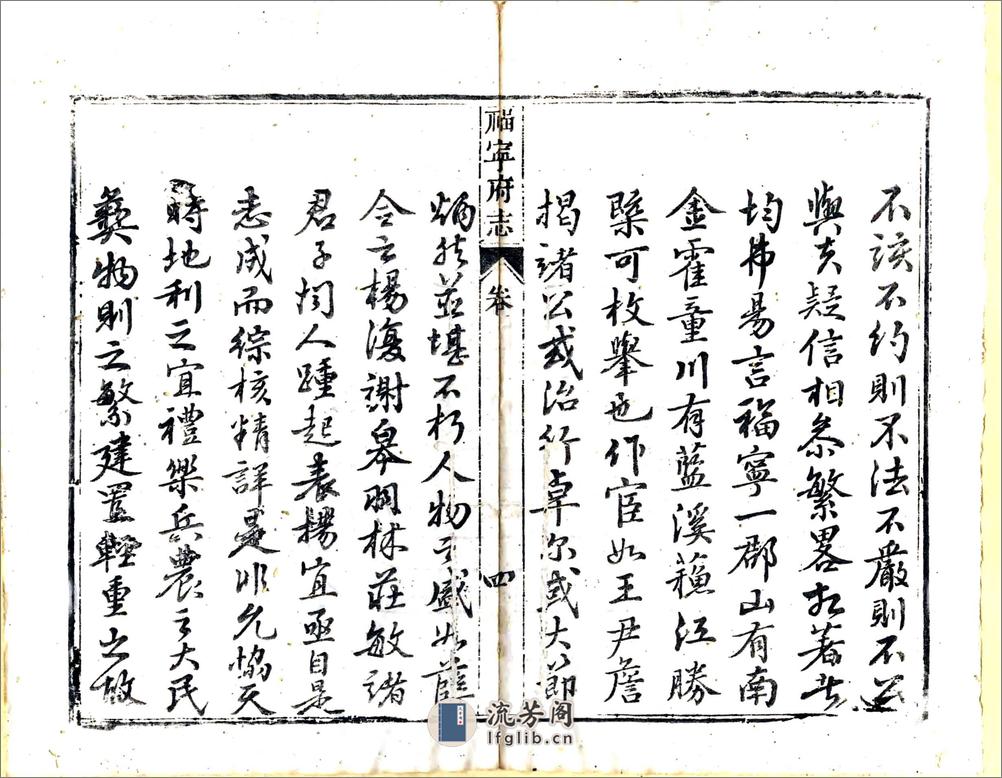 不該不約則不法不嚴則不公
與夫疑信相參繁畧相著者
均弗易言福寧一郡山有南
金霍童川有藍溪蘓江勝
槩可枚舉也作宦如王尹詹
揭諸公或治行卓尔或大節
福寧府志
卷
四
炳然並堪不朽人物之盛如薛
令之楊復謝皋羽林莊敏諸
君子閩人踵起表揚宜亟自是
志成而綜核精詳是非允恊天
時地利之宜禮樂兵農之大民
彜物則之繁建置輕重之故
流芳阁
lfglib.cn